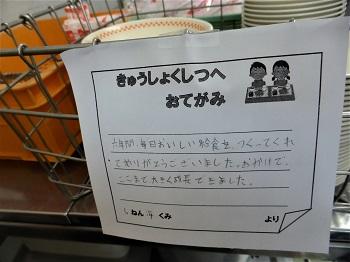 きゅうしょくしつへ
おてがみ
六年間、毎日おいしい給食をつくってくれ
てありがとうございました。おかげで、
ここまで大きく成長できました。
ねん くみ
より